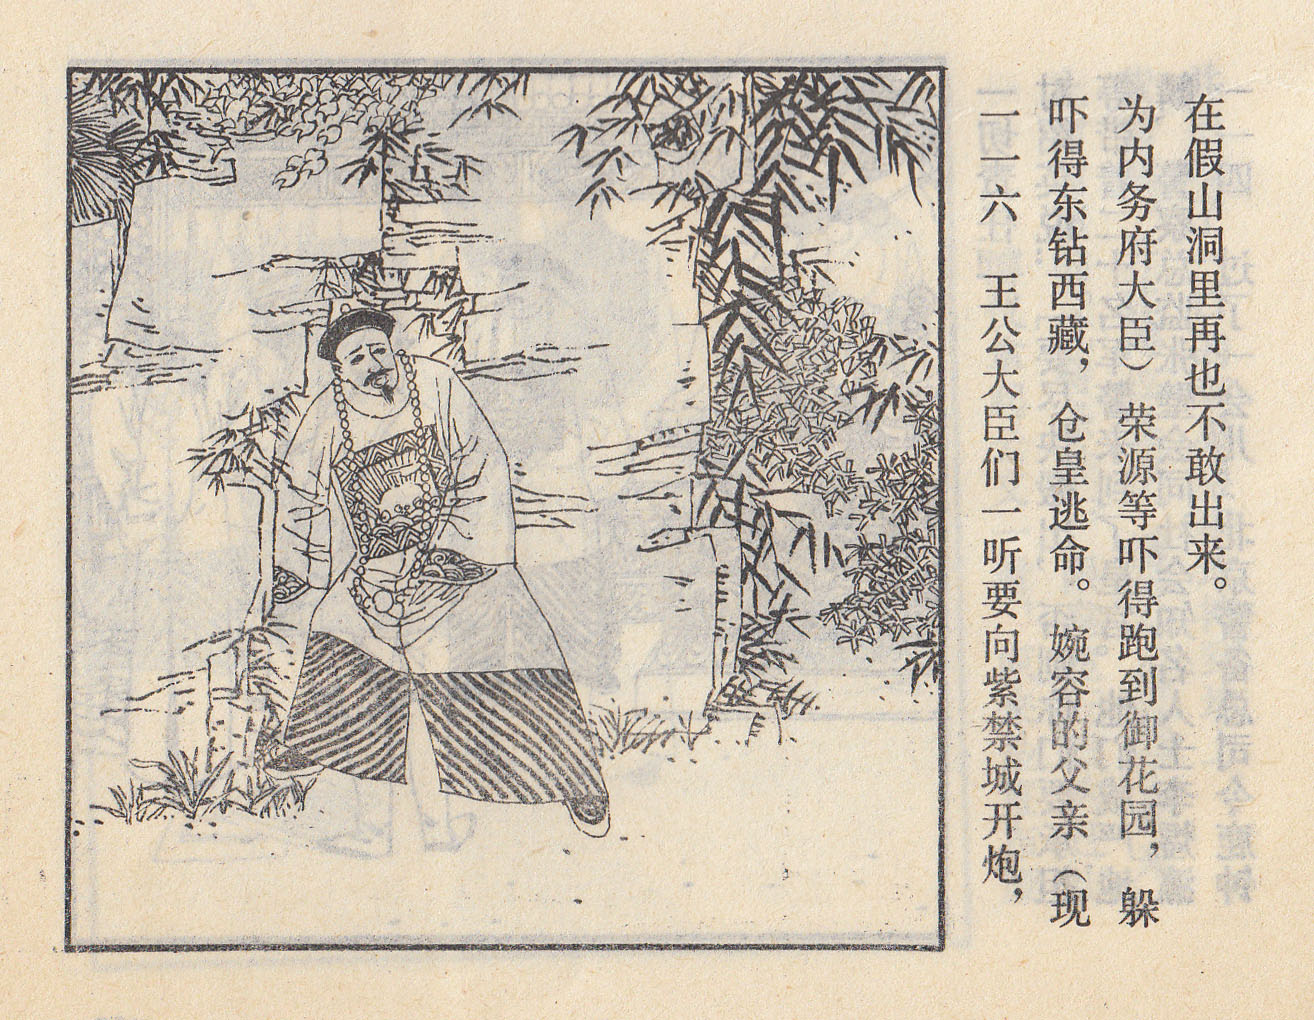 一一六　王公大臣们一听要向紫禁城开炮，
吓得东钻西藏，仓皇逃命。婉容的父亲（现
为内务府大臣）荣源等吓得跑到御花园，躲
在假山洞里再也不敢出来。